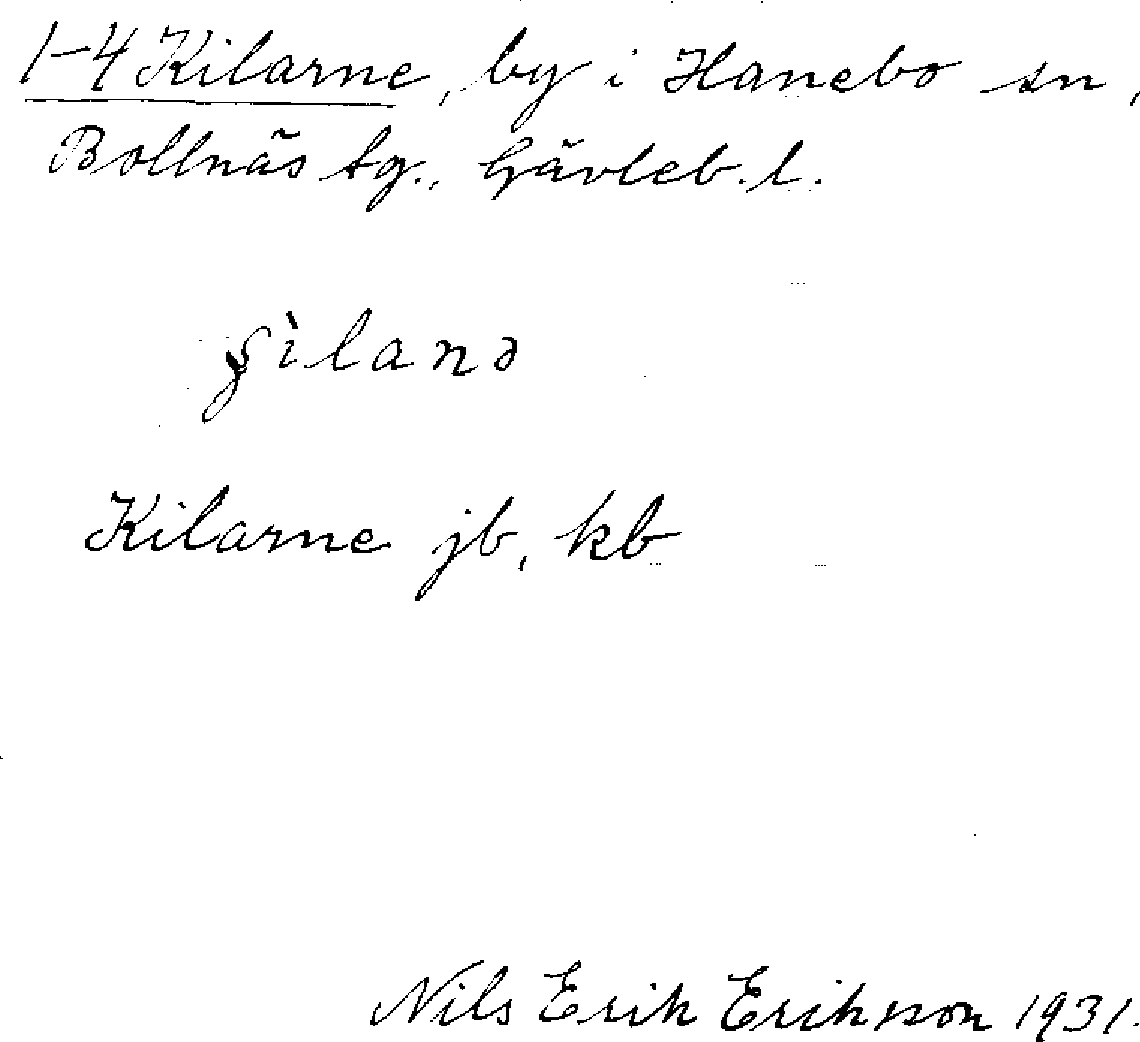 1-4 Kilarne, by i Hanebo sn,
Bollnäs tg., Gävleb. l.
ʃìlanə
Kilarne jb, kb
Nils Erik Eriksson 1931.